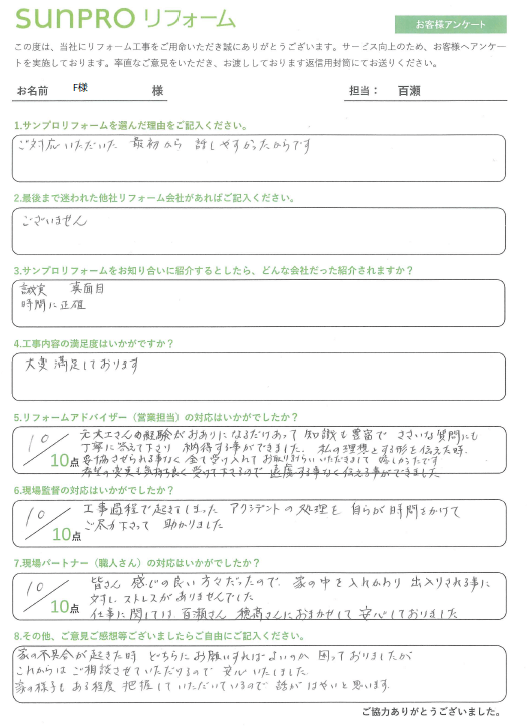 SUNPRO リフォーム
お客様アンケート
この度は、当社にリフォーム工事をご用命いただき誠にありがとうございます。サービス向上のため、お客様へアンケー
トを実施しております。率直なご意見をいただき、お渡ししております返信用封筒にてお送りください。
お名前 F様 様 担当： 百瀬
1.サンプロリフォームを選んだ理由をご記入ください。
ご対応いただいた 最初から 話しやすかったからです
2.最後まで迷われた他社リフォーム会社があればご記入ください。
ございません
3.サンプロリフォームをお知り合いに紹介するとしたら、どんな会社だった紹介されますか？
誠実 真面目
時間に正確
4.工事内容の満足度はいかがですか？
大変満足しております
5.リフォームアドバイザー（営業担当）の対応はいかがでしたか？
10／10点
元大工さんの経験がおありになるだけあって 知識も豊富で ささいな質問にも
丁寧に答えて下さり 納得する事ができました。私の理想とする形を伝えた時、
妥協させられる事なく 全て受け入れて お取りはらいいただきまして 嬉しかったです
希望の変更も気持ち良く 受けて下さるので 遠慮する事なく伝える事ができました
6.現場監督の対応はいかがでしたか？
10／10点
工事過程で起きてしまった アクシデントの処理を 自らが時間をかけて
ご尽力下さって 助かりました
7.現場パートナー（職人さん）の対応はいかがでしたか？
10／10点
皆さん 感じの良い方々だったので 家の中を 入れかわり 出入りされる事に
対し ストレスがありませんでした
仕事に関しては 百瀬さん 穂高さんにおまかせして 安心しておりました
8.その他、ご意見ご感想等ございましたらご自由にご記入ください。
家の不具合が起きた時 どちらに お願いすればよいのか 困っておりましたが
これからは ご相談させていただけるので 安心いたしました
家の様子も ある程度 把握して いただいているので 話がはやいと思います。
ご協力ありがとうございました。